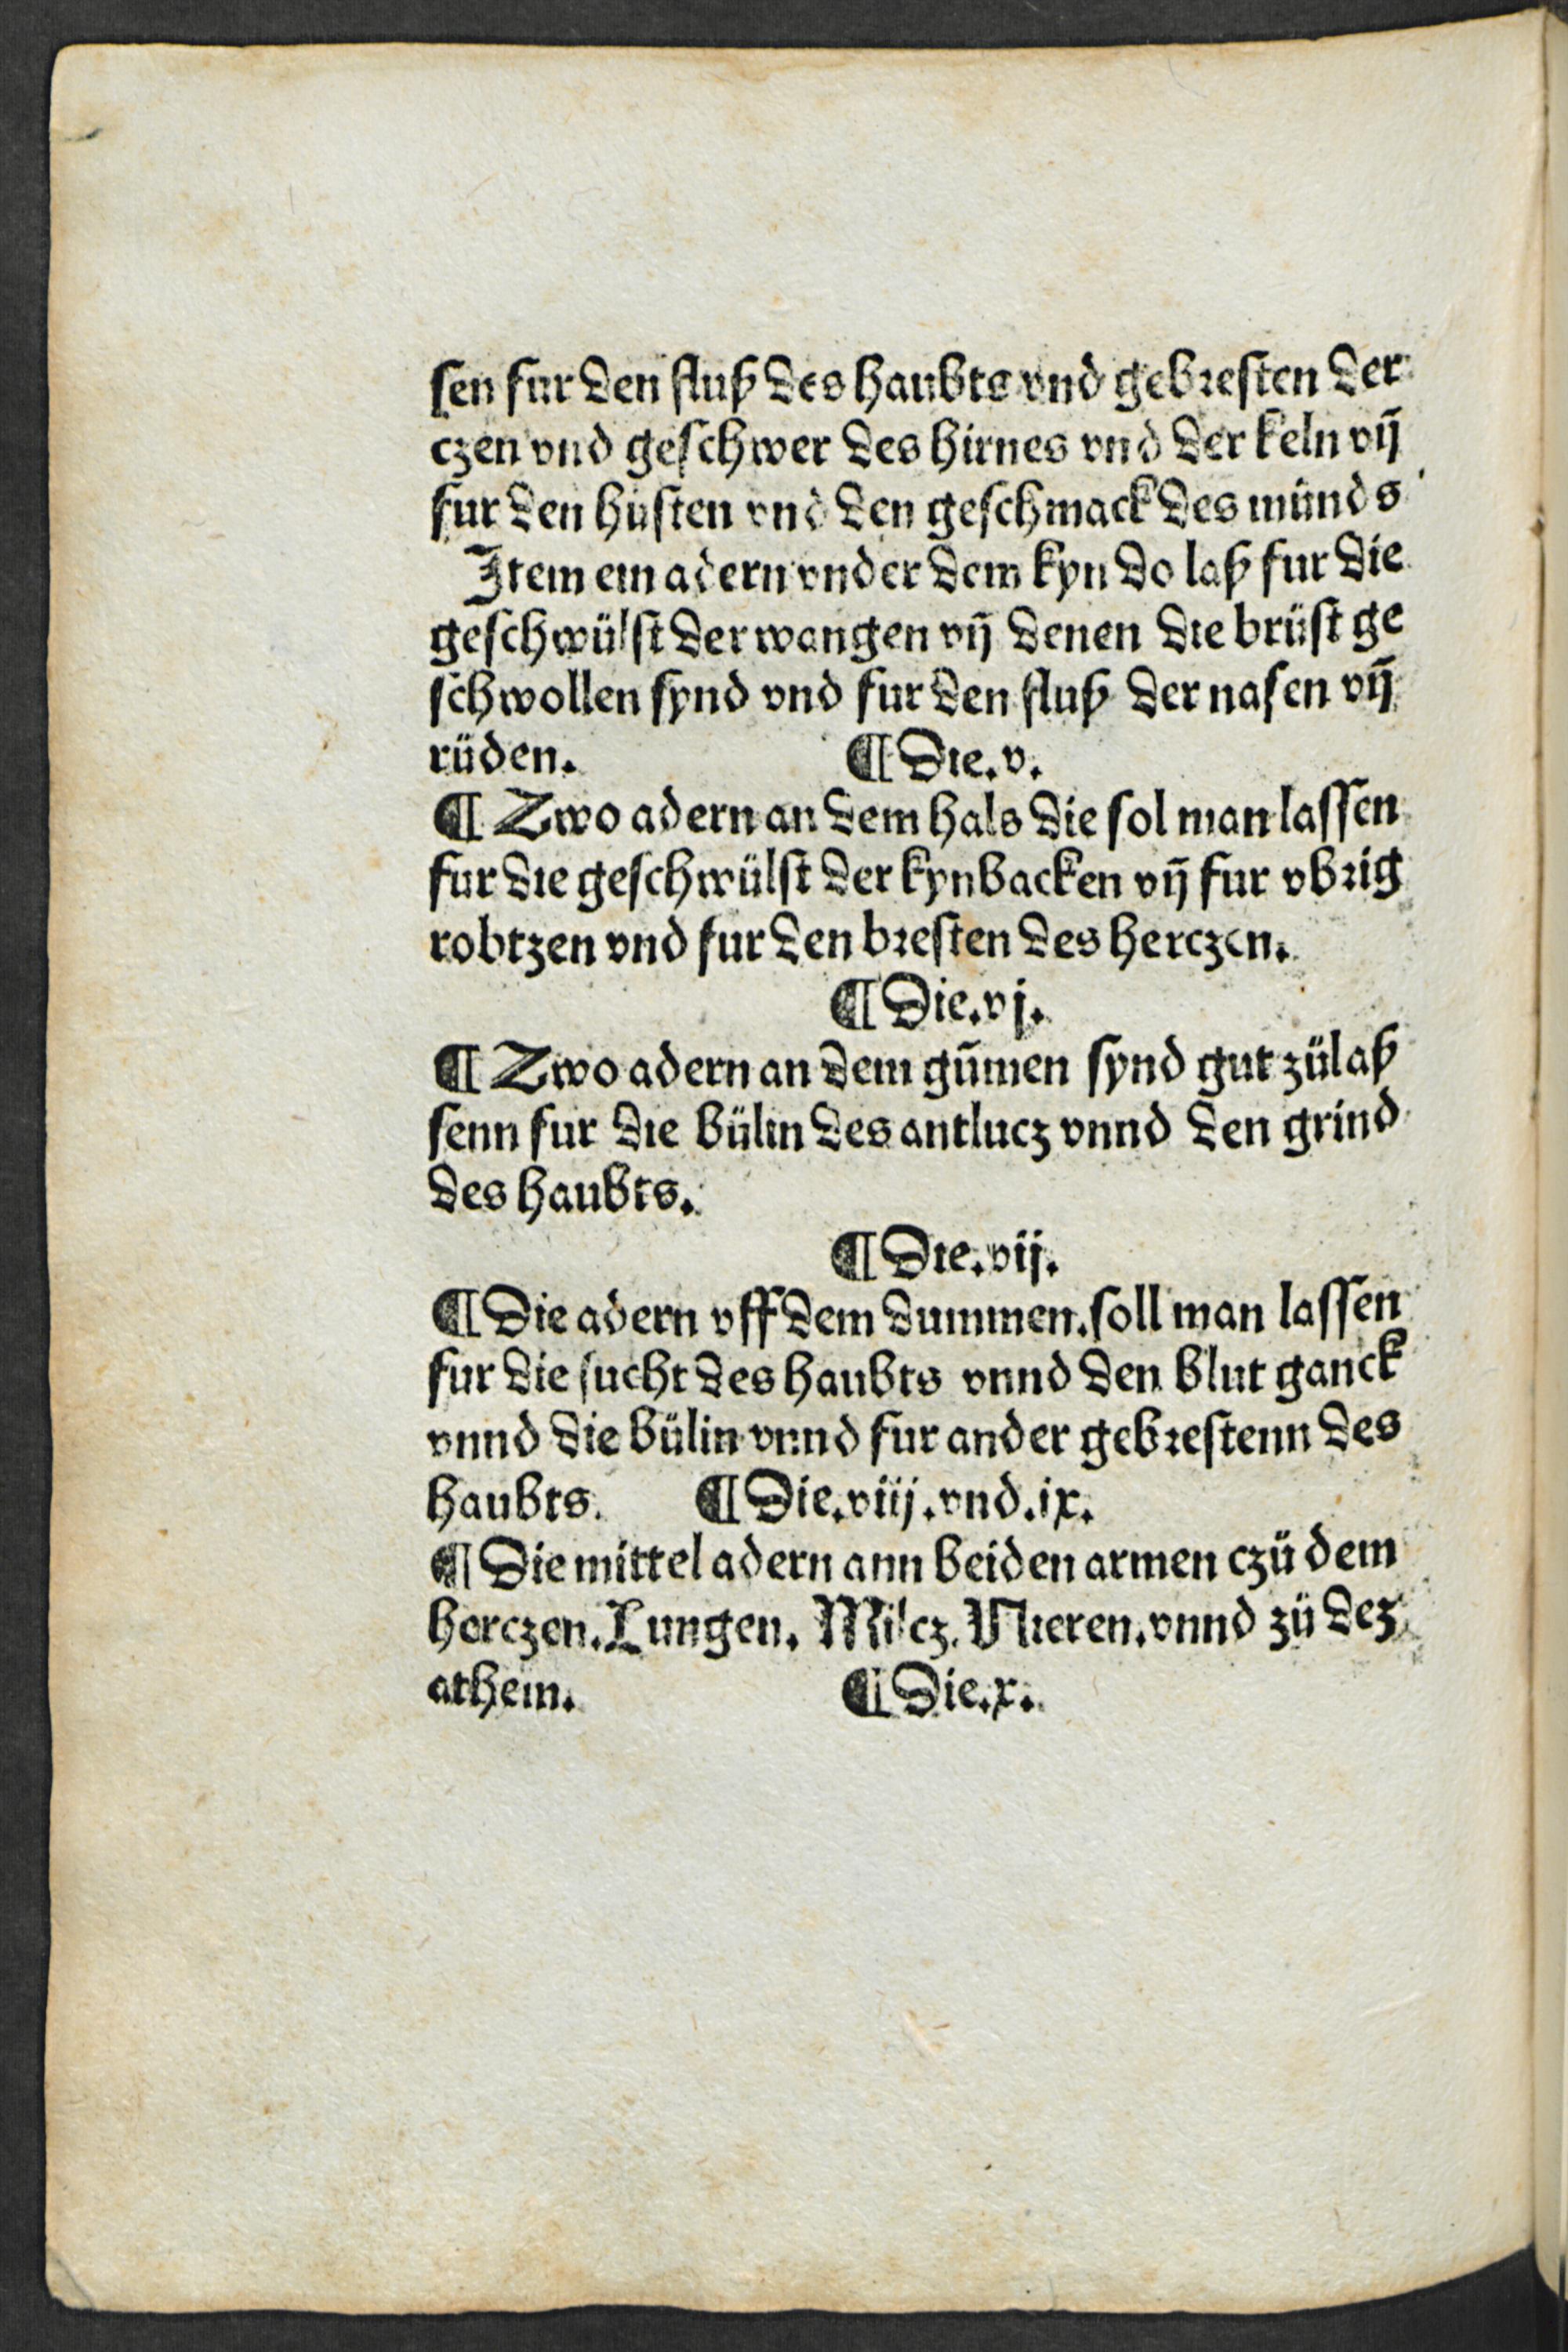 sen fur den fluß des haubts vnd gebresten der
czen vnd geschwer des hirnes vnd der keln vn̄
fur den hüsten vnd den geschmack des münds
Item ein adern vnder dem kyn do laß fur die
geschwülst der wangen vn̄ denen die brüst ge
schwollen synd vnd fur den fluß der nasen vn̄
rüden. ¶ Die.v.
¶ Zwo adern an dem hals die sol man lassen
fur die geschwülst der kynbacken vn̄ fur vbrig
robtzen vnd fur den bresten des herczen.
¶ Die.vj.
¶ Zwo adern an dem gūmen synd gut zülaß
senn fur die bülin des antlucz vnnd den grind
des haubts.
¶ Die.vij.
¶ Die adern vff dem dummen.soll man lassen
fur die sucht des haubts vnnd den blut ganck
vnnd die bülin vnnd fur ander gebrestenn des
haubts. ¶ Die.viij.vnd.ix.
¶ Die mittel adern ann beiden armen czü dem
herczen.Lungen. Milcz.Nieren.vnnd zü dez
athem. ¶ Die.x.